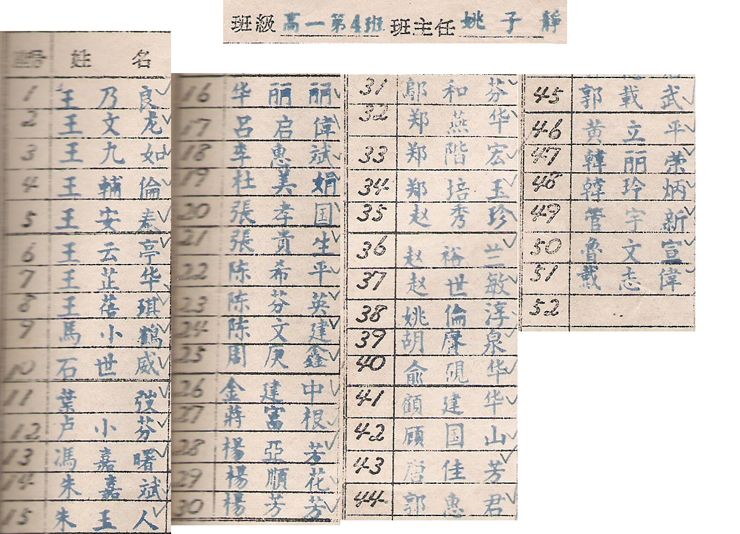 班級 高一第4班 班主任 姚子靜
姓 名
1 王乃良
2 王文龙
3 王九如
4 王輔倫
5 王安泰
6 王云亭
7 王芷华
8 王蓓琪
9 馬小鶴
10 石世威
11 葉弢
12 卢小芬
13 馮嘉曙
14 朱嘉斌
15 朱玉人
16 华丽丽
17 呂启偉
18 李惠斌
19 杜美娟
20 張孝国
21 張貴生
22 陈希平
23 陈芬英
24 陈文建
25 周庚鑫
26 金建中
27 蔣富根
28 楊亞芳
29 楊順花
30 楊芳芳
31 鄔和芬
32 郑燕华
33 郑階宏
34 郑培玉
35 赵秀珍
36 赵裕兰
37 赵世敏
38 姚倫淳
39 胡摩泉
40 俞硯华
41 顧建华
42 顾国山
43 唐佳芳
44 郭惠君
45 郭載武
46 黃立平
47 韓丽荣
48 韓玲炳
49 管宇新
50 魯文宣
51 戴志偉
52